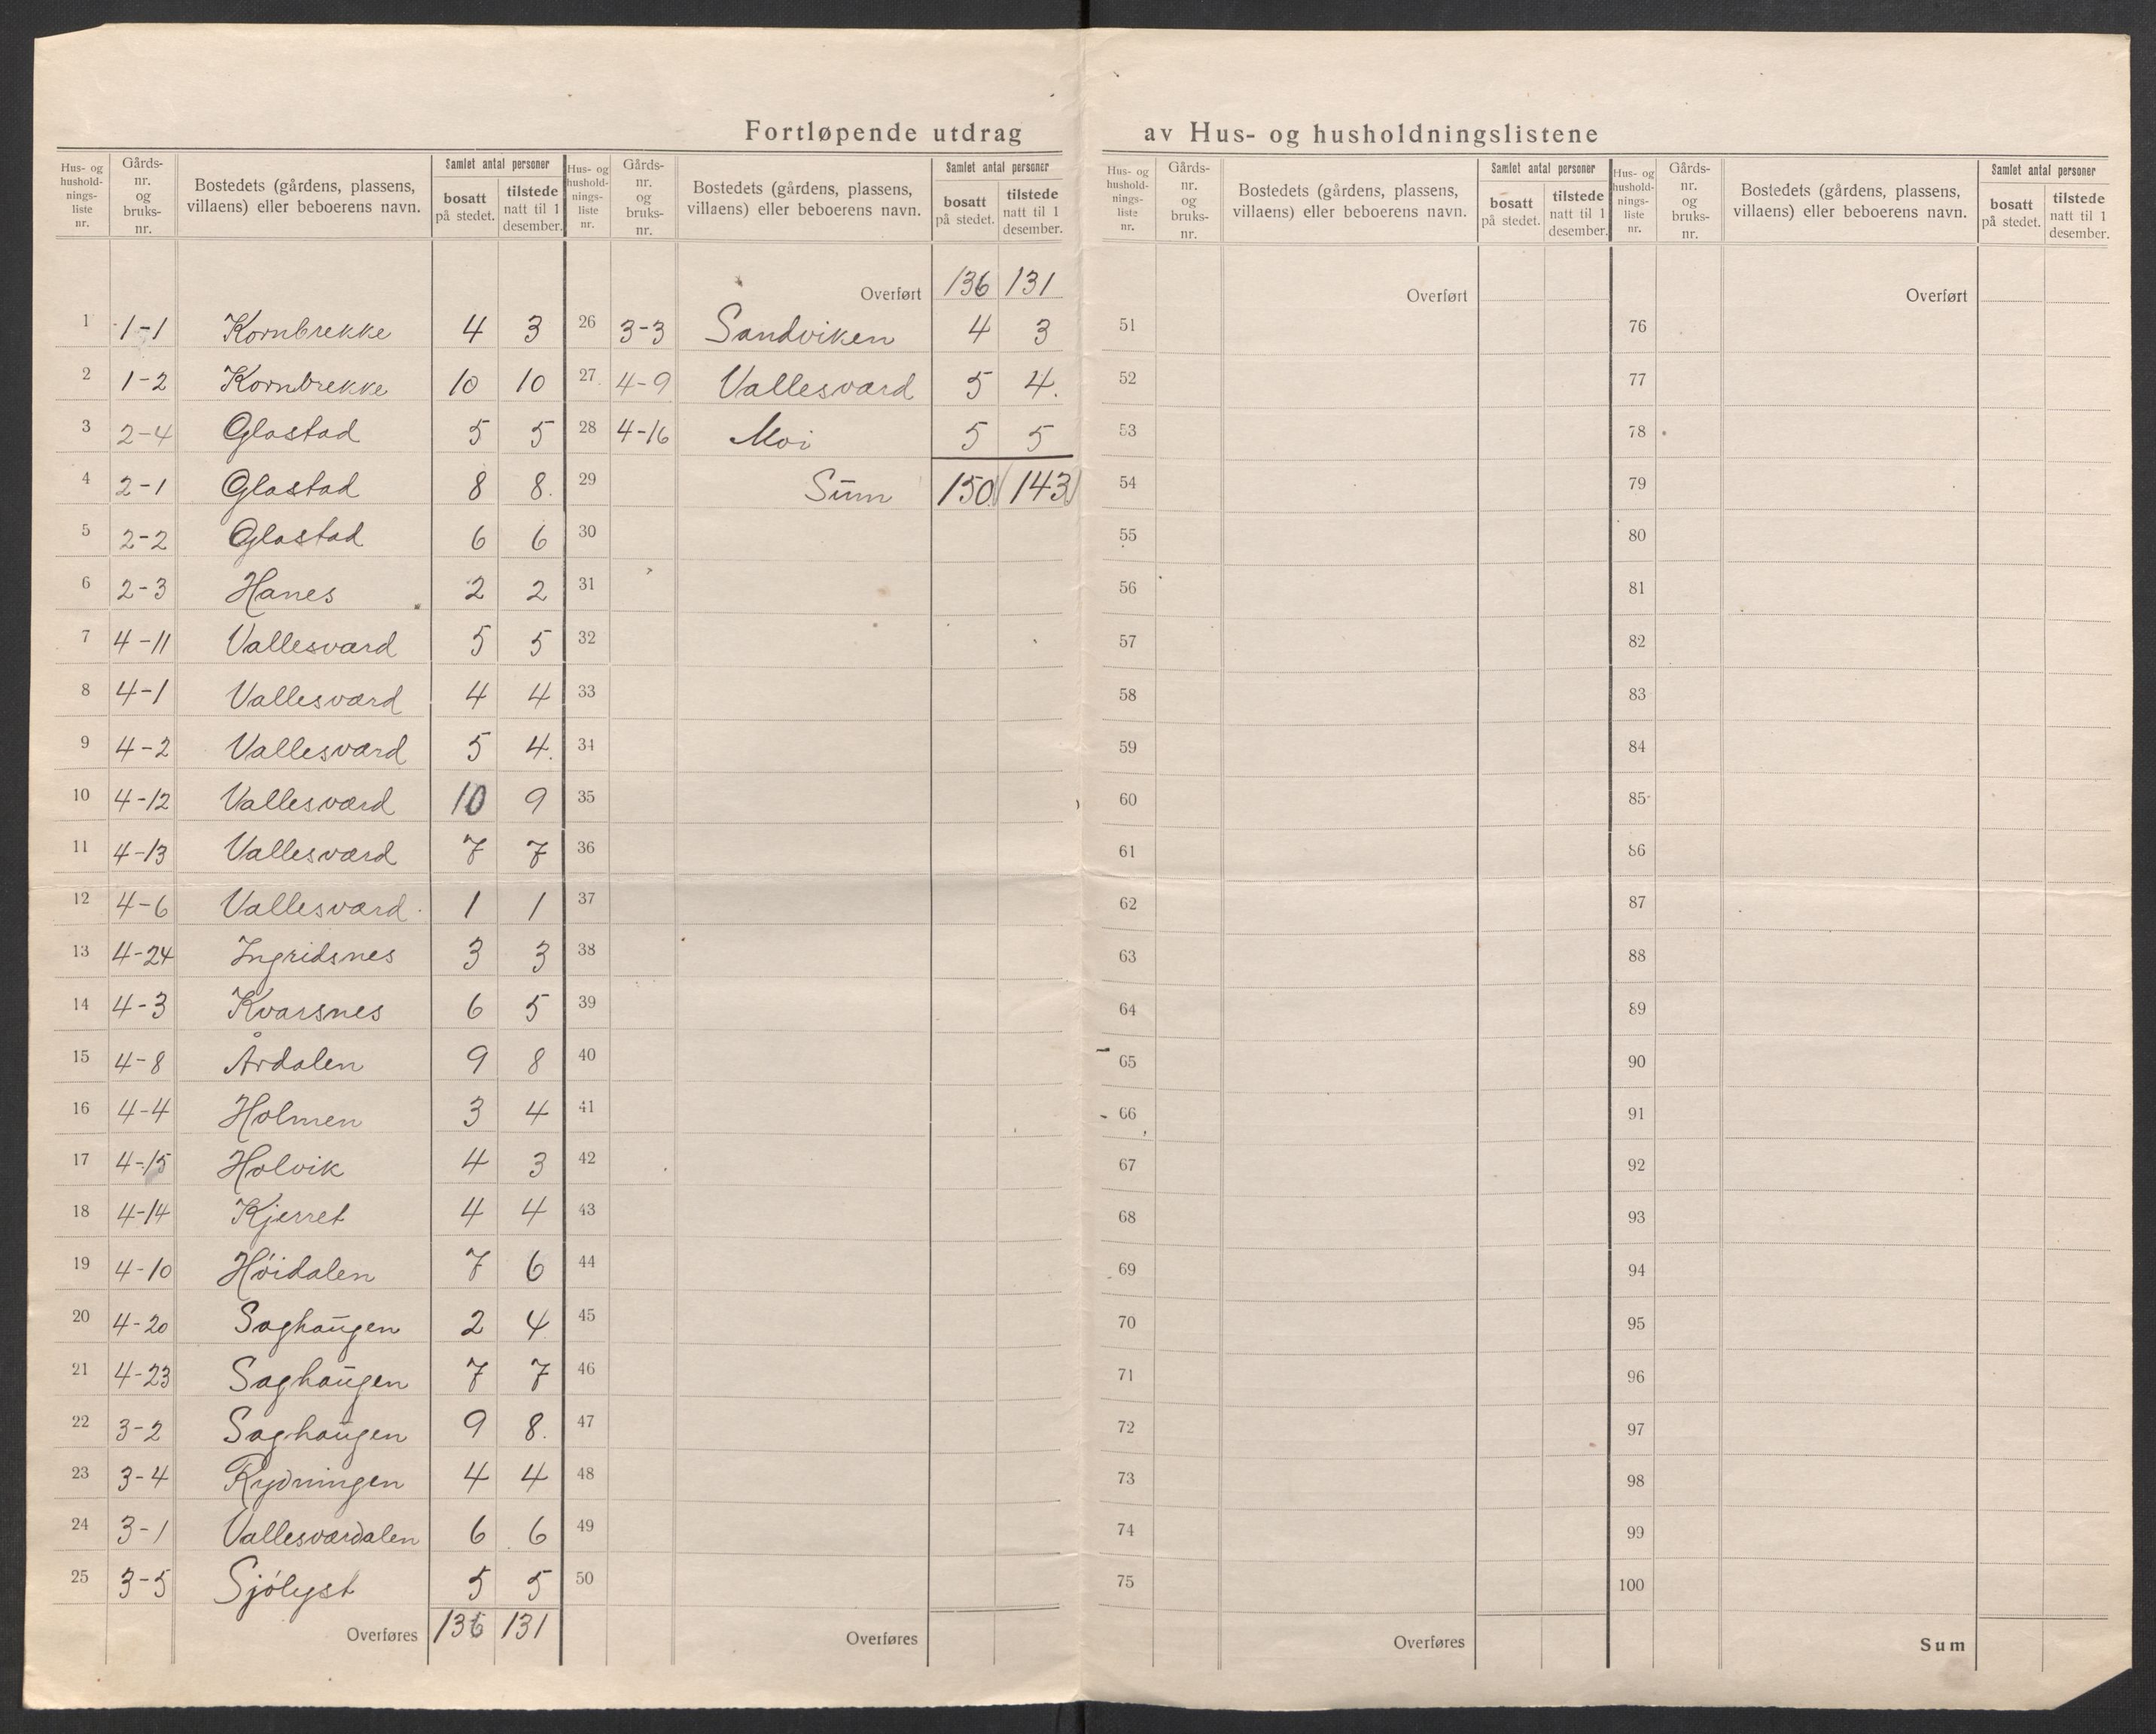 Fortløpende utdrag av Hus- og husholdningslistene
Hus- og hushold-nings-liste nr. | Gårds-nr. og bruks-nr. | Bostedets (gårdens, plassens, villaens) eller beboerens navn. | Samlet antal personer | bosatt på stedet. | tilstede natt til 1 desember.
1 1-1 Kornbrekke 4 3
2 1-2 Kornbrekke 10 10
3 2-4 Glastad 5 5
4 2-1 Glastad 8 8.
5 2-2 Glastad 6 6
6 2-3 Hanes 2 2
7 4-11 Vallesværd 5 5
8 4-1 Vallesværd 4 4
9 4-2 Vallesværd 5 4.
10 4-12 Vallesværd 10 9
11 4-13 Vallesværd 7 7
12 4-6 Vallesværd. 1 1
13 4-24 Ingridsnes 3 3
14 4-3 Kvarsnes 6 5
15 4-8 Årdalen 9 8
16 4-4 Holmen 3 4
17 4-15 Holvik 4 3
18 4-14 Kjerret 4 4
19 4-10 Høidalen 7 6
20 4-20 Saghaugen 2 4
21 4-23 Saghaugen 7 7
22 3-2 Saghaugen 9 8.
23 3-4 Rydningen 4 4
24 3-1 Vallesværdalen 6 6
25 3-5 Sjølyst 5 5
Overføres 136 131
Hus- og hushold-nings-liste nr. | Gårds-nr. og bruks-nr. | Bostedets (gårdens, plassens, villaens) eller beboerens navn. | Samlet antal personer | bosatt på stedet. | tilstede natt til 1 desember.
Overført 136 131
26 3-3 Sandviken 4 3
27 4-9 Vallesværd 5 4.
28 4-16 Moi 5 5
29 Sum 150 143
30
31
32
33
34
35
36
37
38
39
40
41
42
43
44
45
46
47
48
49
50
Overføres
Hus- og hushold-nings-liste nr. | Gårds-nr. og bruks-nr. | Bostedets (gårdens, plassens, villaens) eller beboerens navn. | Samlet antal personer | bosatt på stedet. | tilstede natt til 1 desember.
Overført
51
52
53
54
55
56
57
58
59
60
61
62
63
64
65
66
67
68
69
70
71
72
73
74
75
Overføres
Hus- og hushold-nings-liste nr. | Gårds-nr. og bruks-nr. | Bostedets (gårdens, plassens, villaens) eller beboerens navn. | Samlet antal personer | bosatt på stedet. | tilstede natt til 1 desember.
Overført
76
77
78
79
80
81
82
83
84
85
86
87
88
89
90
91
92
93
94
95
96
97
98
99
100
Sum